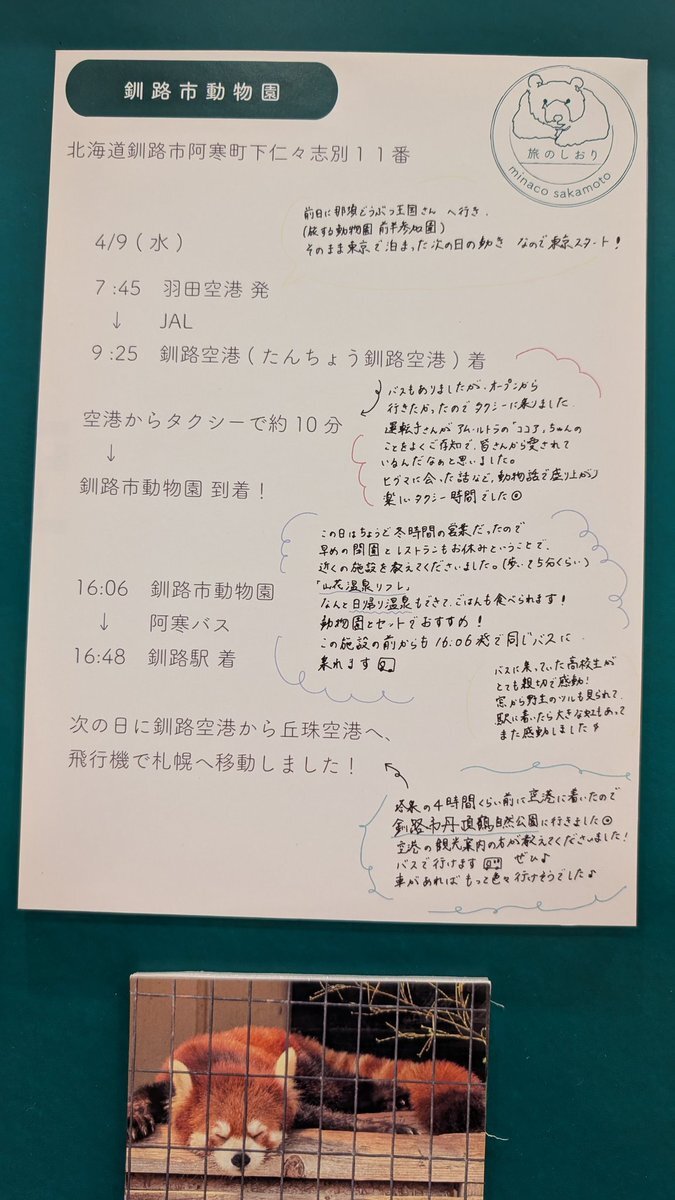 釧路市動物園
旅のしおり
minaco sakamoto
北海道釧路市阿寒町下仁々志別11番
前日に那須どうぶつ王国さん へ行き、
(旅する動物園 前半参加園)
そのまま東京で泊まった次の日の動き なので東京スタート!
4/9(水)
7:45 羽田空港 発
↓ JAL
9:25 釧路空港(たんちょう釧路空港)着
バスもありましたが、オープンから
行きたかったのでタクシーに乗りました。
運転手さんがアムールトラの「ココア」ちゃんの
ことをよくご存知で、皆さんから愛されて
いるんだなぁと思いました。
ヒグマに会った話など、動物話で盛り上がり
楽しいタクシー時間でした
空港からタクシーで約10分
↓
釧路市動物園 到着!
この日はちょうど冬時間の営業だったので
早めの閉園とレストランもお休みということで、
近くの施設を教えてくださいました。(歩いて5分くらい)
「山花温泉リフレ」
なんと日帰り温泉もできて、ごはんも食べられます!
動物園とセットでおすすめ!
この施設の前からも16:06発で同じバスに
乗れます
16:06 釧路市動物園
↓ 阿寒バス
16:48 釧路駅 着
バスに乗っていた高校生が
とても親切で感動!
窓から野生のツルも見られて、
駅に着いたら大きな虹もあって
また感動しました
次の日に釧路空港から丘珠空港へ、
飛行機で札幌へ移動しました!
搭乗の4時間くらい前に空港に着いたので
釧路市丹頂鶴自然公園に行きました
空港の観光案内の方が教えてくださいました!
バスで行けます ぜひ♪
車があればもっと色々行けそうでした♪